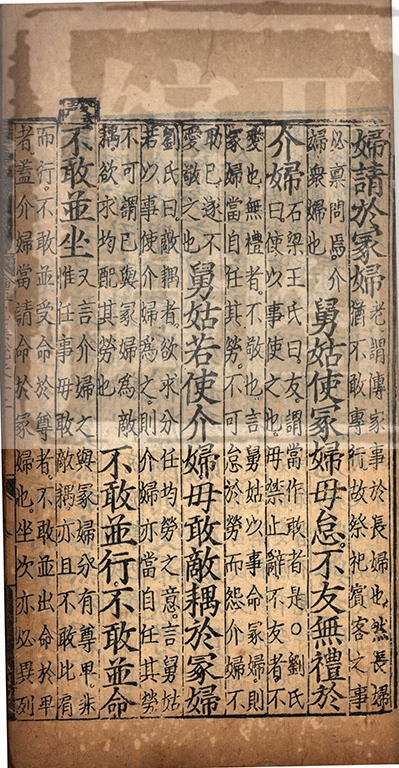 婦請於冢婦
老謂傳家事於長婦也然長婦
猶不敢專行故祭祀賓客之事
必稟問焉介
婦衆婦也
舅姑使冢婦毋怠不友無禮於
介婦
石梁王氏曰友謂當作敢者是○劉氏
曰使以事使之也毋禁止辭不友者不
愛也無禮者不敬也言舅姑以事命冢婦則
冢婦當自任其勞不可怠於勞而怨介婦不
助已遂不
愛敬之也
舅姑若使介婦毋敢敵耦於冢婦
劉氏曰敵耦者欲求分任均勞之意言舅姑
若以事使介婦爲之則介婦亦當自任其勞
不可謂已與冢婦爲敵
耦欲求均配其勞也
不敢並行不敢並命
不敢並坐
又言介婦之與冢婦分有尊卑非
惟任事毋敢敵耦亦且不敢比肩
而行不敢並受命於尊者不敢並出命於卑
者蓋介婦當請命於冢婦也坐次亦必異列